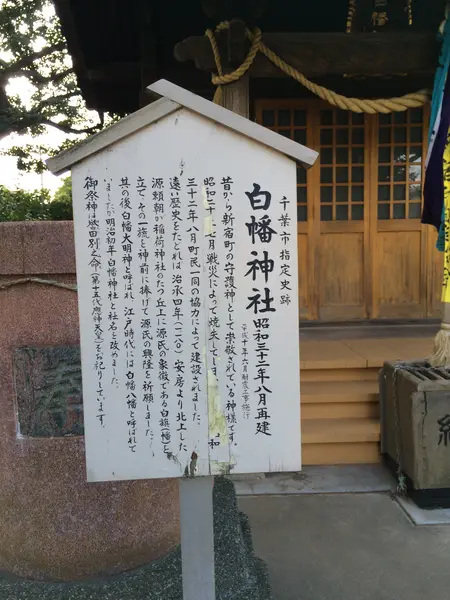 千葉市指定史跡
白幡神社 昭和三十二年八月再建
平成十年六月
昔から新宿町の守護神として崇敬されている神様です。
昭和二十年七月戦災によって焼失し
三十二年八月町民一同の協力によって建設されました。
遠い歴史をたどれば、治承四年(一一八〇)安房より北上した
源頼朝が稲荷神社のたつ丘上に源氏の象徴である白旗(幡)を
立てその一族と神前に捧げて源氏の興隆を祈願しました。
其の後白幡大明神と呼ばれ、江戸時代には白幡八幡と呼ばれて
いましたが明治初年白幡神社と社名と改めました。
御祭神は誉田別之命(第十五代應神天皇)をお祀りしています。